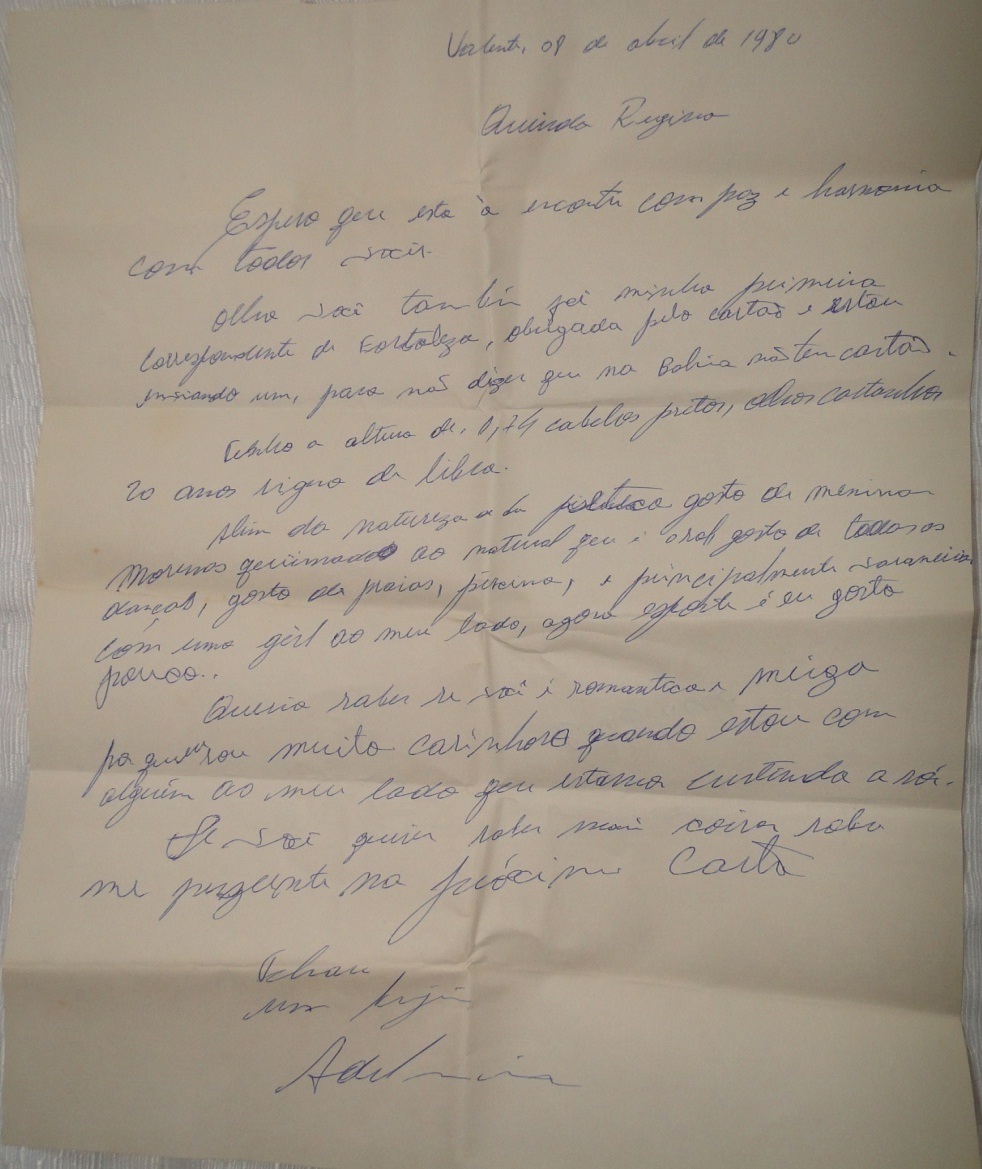 Valente, 08 de abril de 1980
Querida Regina
Espero que esta à encontre com paz e harmonia
com todos voçês.
Olha voçê também foi minha primeira
correspondente de Fortaleza, obrigada pelo cartão e estou
enviando um, para não dizer que na Bahia não tem cartão.
Tenho a altura de, 1,74 cabelos pretos, olhos castanhos
20 anos signo de libra.
Além da natureza e da gosto de meninas
Morenas queimadas ao natural que é o sol gosto de todas as
danças, gosto de praias, piscina, e principalmente
com uma gerl ao meu lado, agora esporte é eu gosto
pouco..
Queria saber se voçê é romantica e meiga
porque sou muito carinhoso quando estou com
alguém ao meu lado que estamos curtindo a sós.
Se voçê quiser saber mais coisas sobre
me pergunte na próxima Carta
Tchau
um beijo